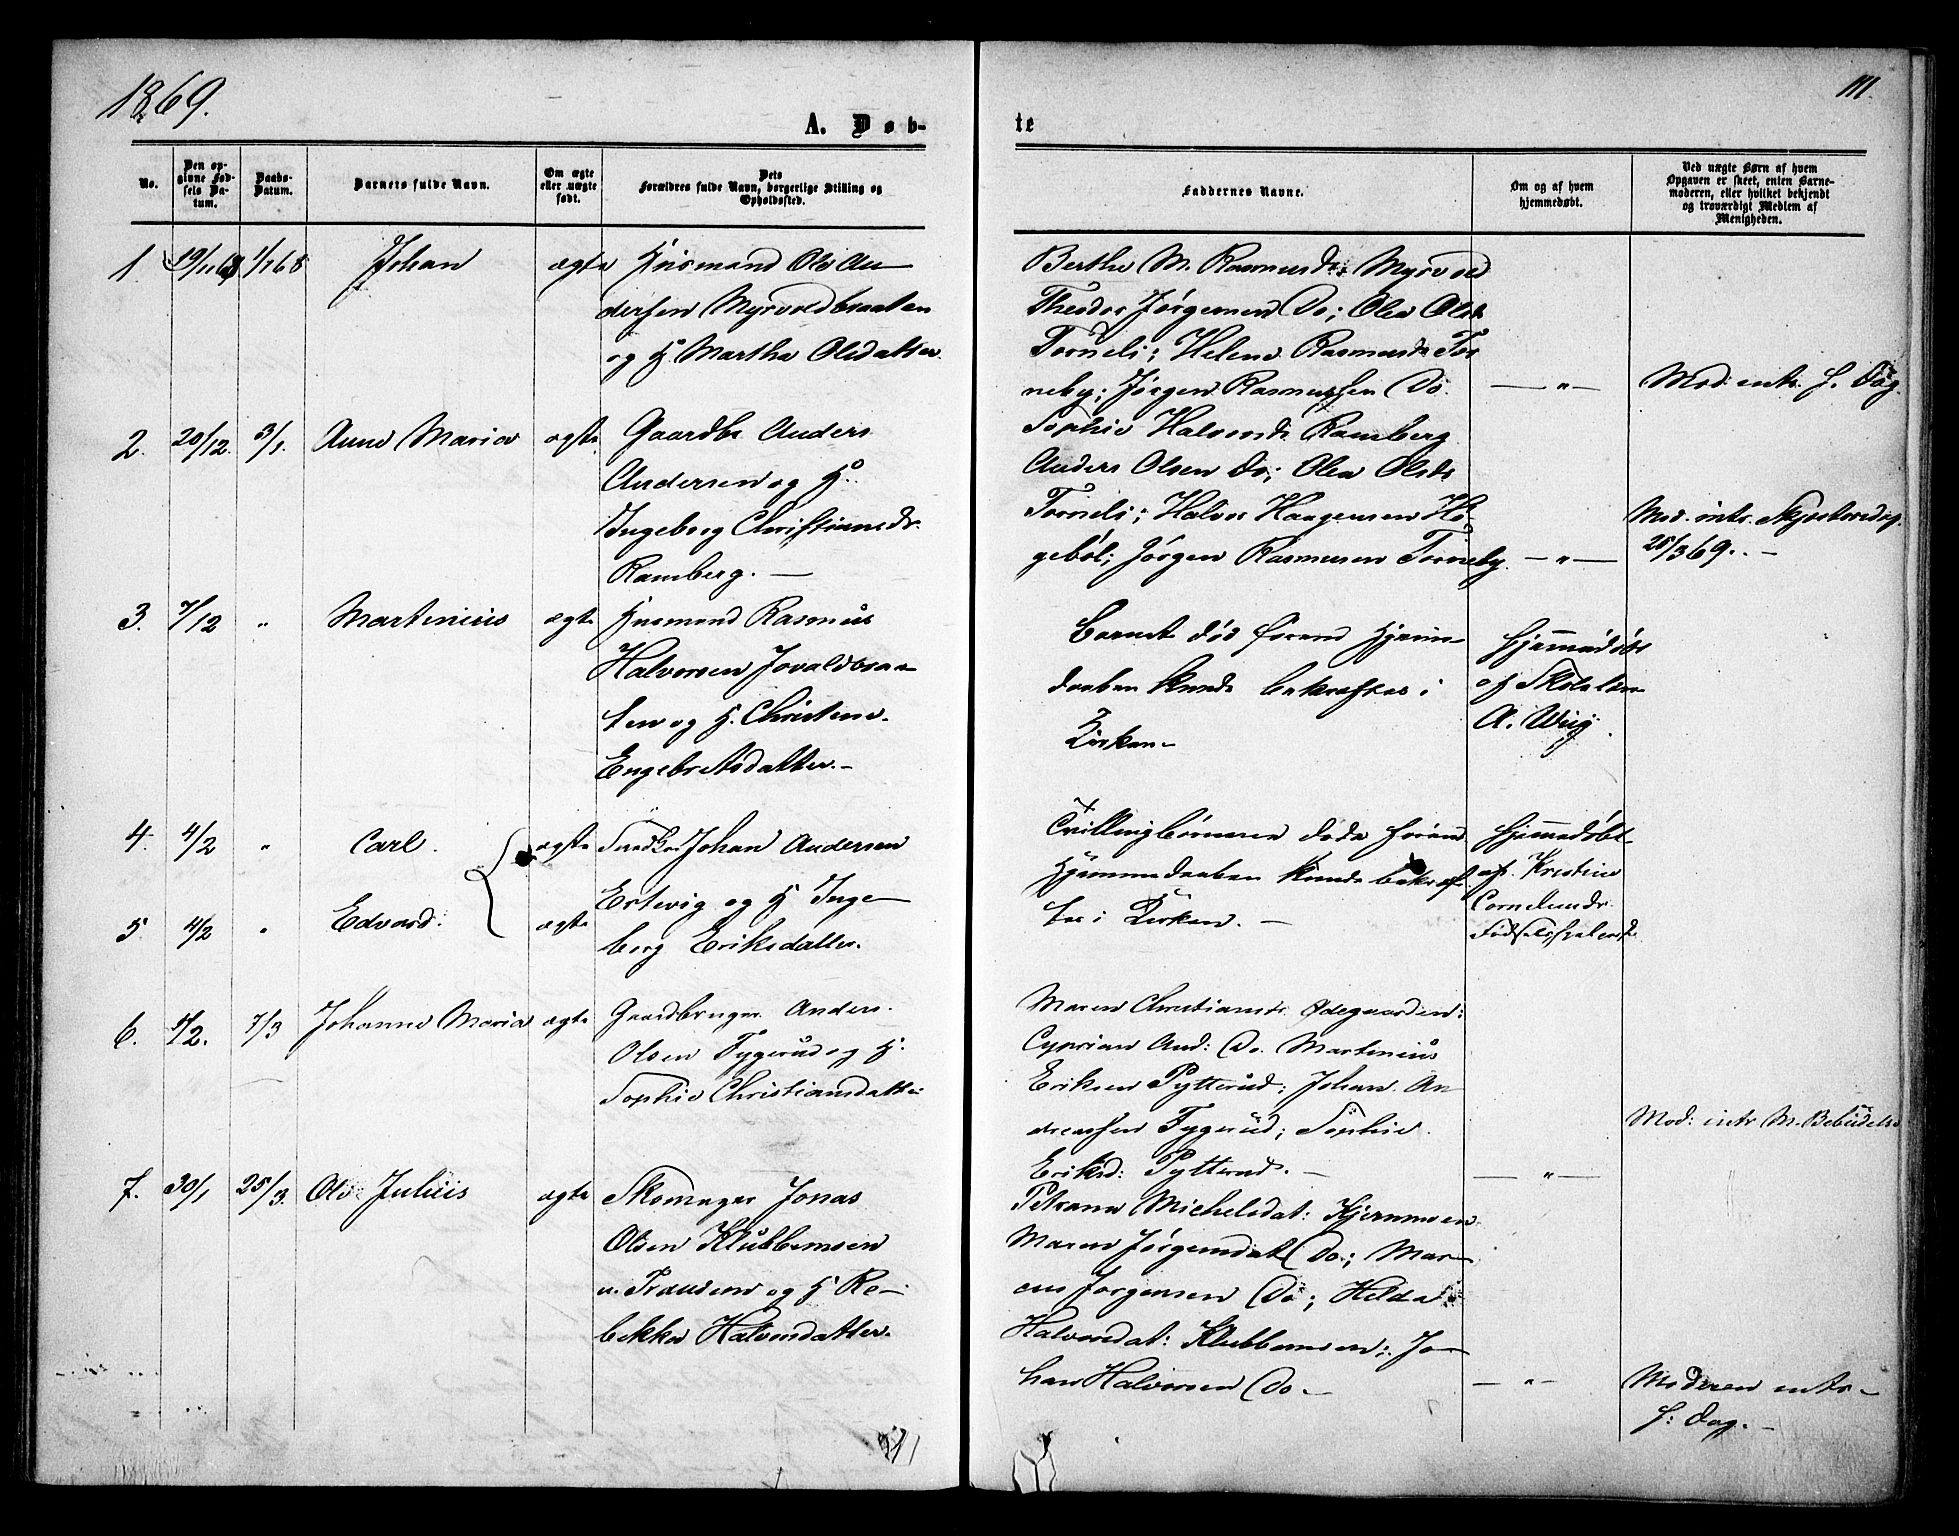 1869.
111.
A. Døb-
te
No.
Den op-
givne Fød-
sels Da-
tum.
Daabs-
Datum.
Barnets fulde Navn.
Om ægte
eller uægte
født.
Dets
Forældres fulde Navn, borgerlige Stilling og
Opholdssted.
Faddernes Navne.
Om og af hvem
hjemmedøbt.
Ved uægte Børn af hvem
Opgaven er skeet, enten Barne-
moderen, eller hvilket bekjendt
og troværdigt Medlem af
Menigheden.
1. 19/11 68 1/1 68 Johan ægte Husmand Ole An
dersen Myrvoldbraaten
og H. Martha Olsdatter
Berthe M. Rasmusdr. Myrvold
Theodor Jørgensen Do; Olea Olsdr
Torneli; Helene Rasmusdr Tor
neby; Jørgen Rasmussen Do. — " — Mod. intr. s. Dag.
2. 20/12. 3/1. Anne Maria ægte Gaardbr Anders
Andersen og H.
Ingeborg Christiansdr.
Ramberg. —
Sophie Halvorsdr Ramberg
Anders Olsen Do; Olea Olsdr
Torneli; Halvor Haagensen Hø-
gebøl; Jørgen Rasmussen Torneby. — " —
Mod. intr. Skjærtorsdag
25/3 69. —
3. 7/12 " Martinius ægte Husmand Rasmus
Halvorsen Jovaldbraa-
ten og H. Christine
Engebretsdatter. —
Barnet død førend Hjemme-
daaben kunde bekræftes i
Kirken —
Hjemmedøbt
af Skolelærer
A. Wiig.
4. 4/2 " Carl. ægte Snedker Johan Andersen
Ertevig og H Inge-
5. 4/2 " Edvard. ægte
borg Eriksdatter.
Tvillingbørnene døde førend
Hjemmedaaben kunde bekræf
tes i Kirken. —
Hjemmedøbt
af Kristine
Corneliusdr.
6. 5/2. 7/3 Johanne Maria ægte Gaardbruger Anders
Olsen Fygerud og H.
Sophie Christiansdatter
Maren Christiansdr. Ødegaarden;
Cyprian And: Do. Martinius
Eriksen Pytterud; Johan An
dreassen Fygerud; Sophie
Eriksd: Pytterud. — — " —
Mod: intr M. Bebudelse
7. 30/1 25/3. Ole Julius ægte Skomager Jonas
Olsen Klubbemoen
u. Frausene og H Re-
bekka Halvorsdatter.
Petrana Michelsdat: Kjernmoen
Maren Jørgensdat Do.; Mar-
cus Jørgensen Do; Helda
Halvorsdat: Klubbemoen; Jo-
han Halvorsen Do — — " —
Moderen intr
s: Dag. —